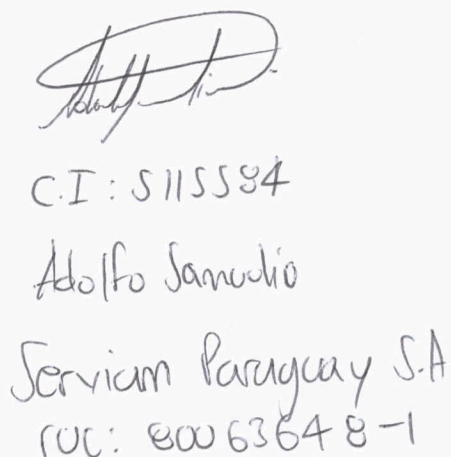 C.I: 5115584
Adolfo Sanudio
Serviam Paraguay S.A
RUC: 80063648-1